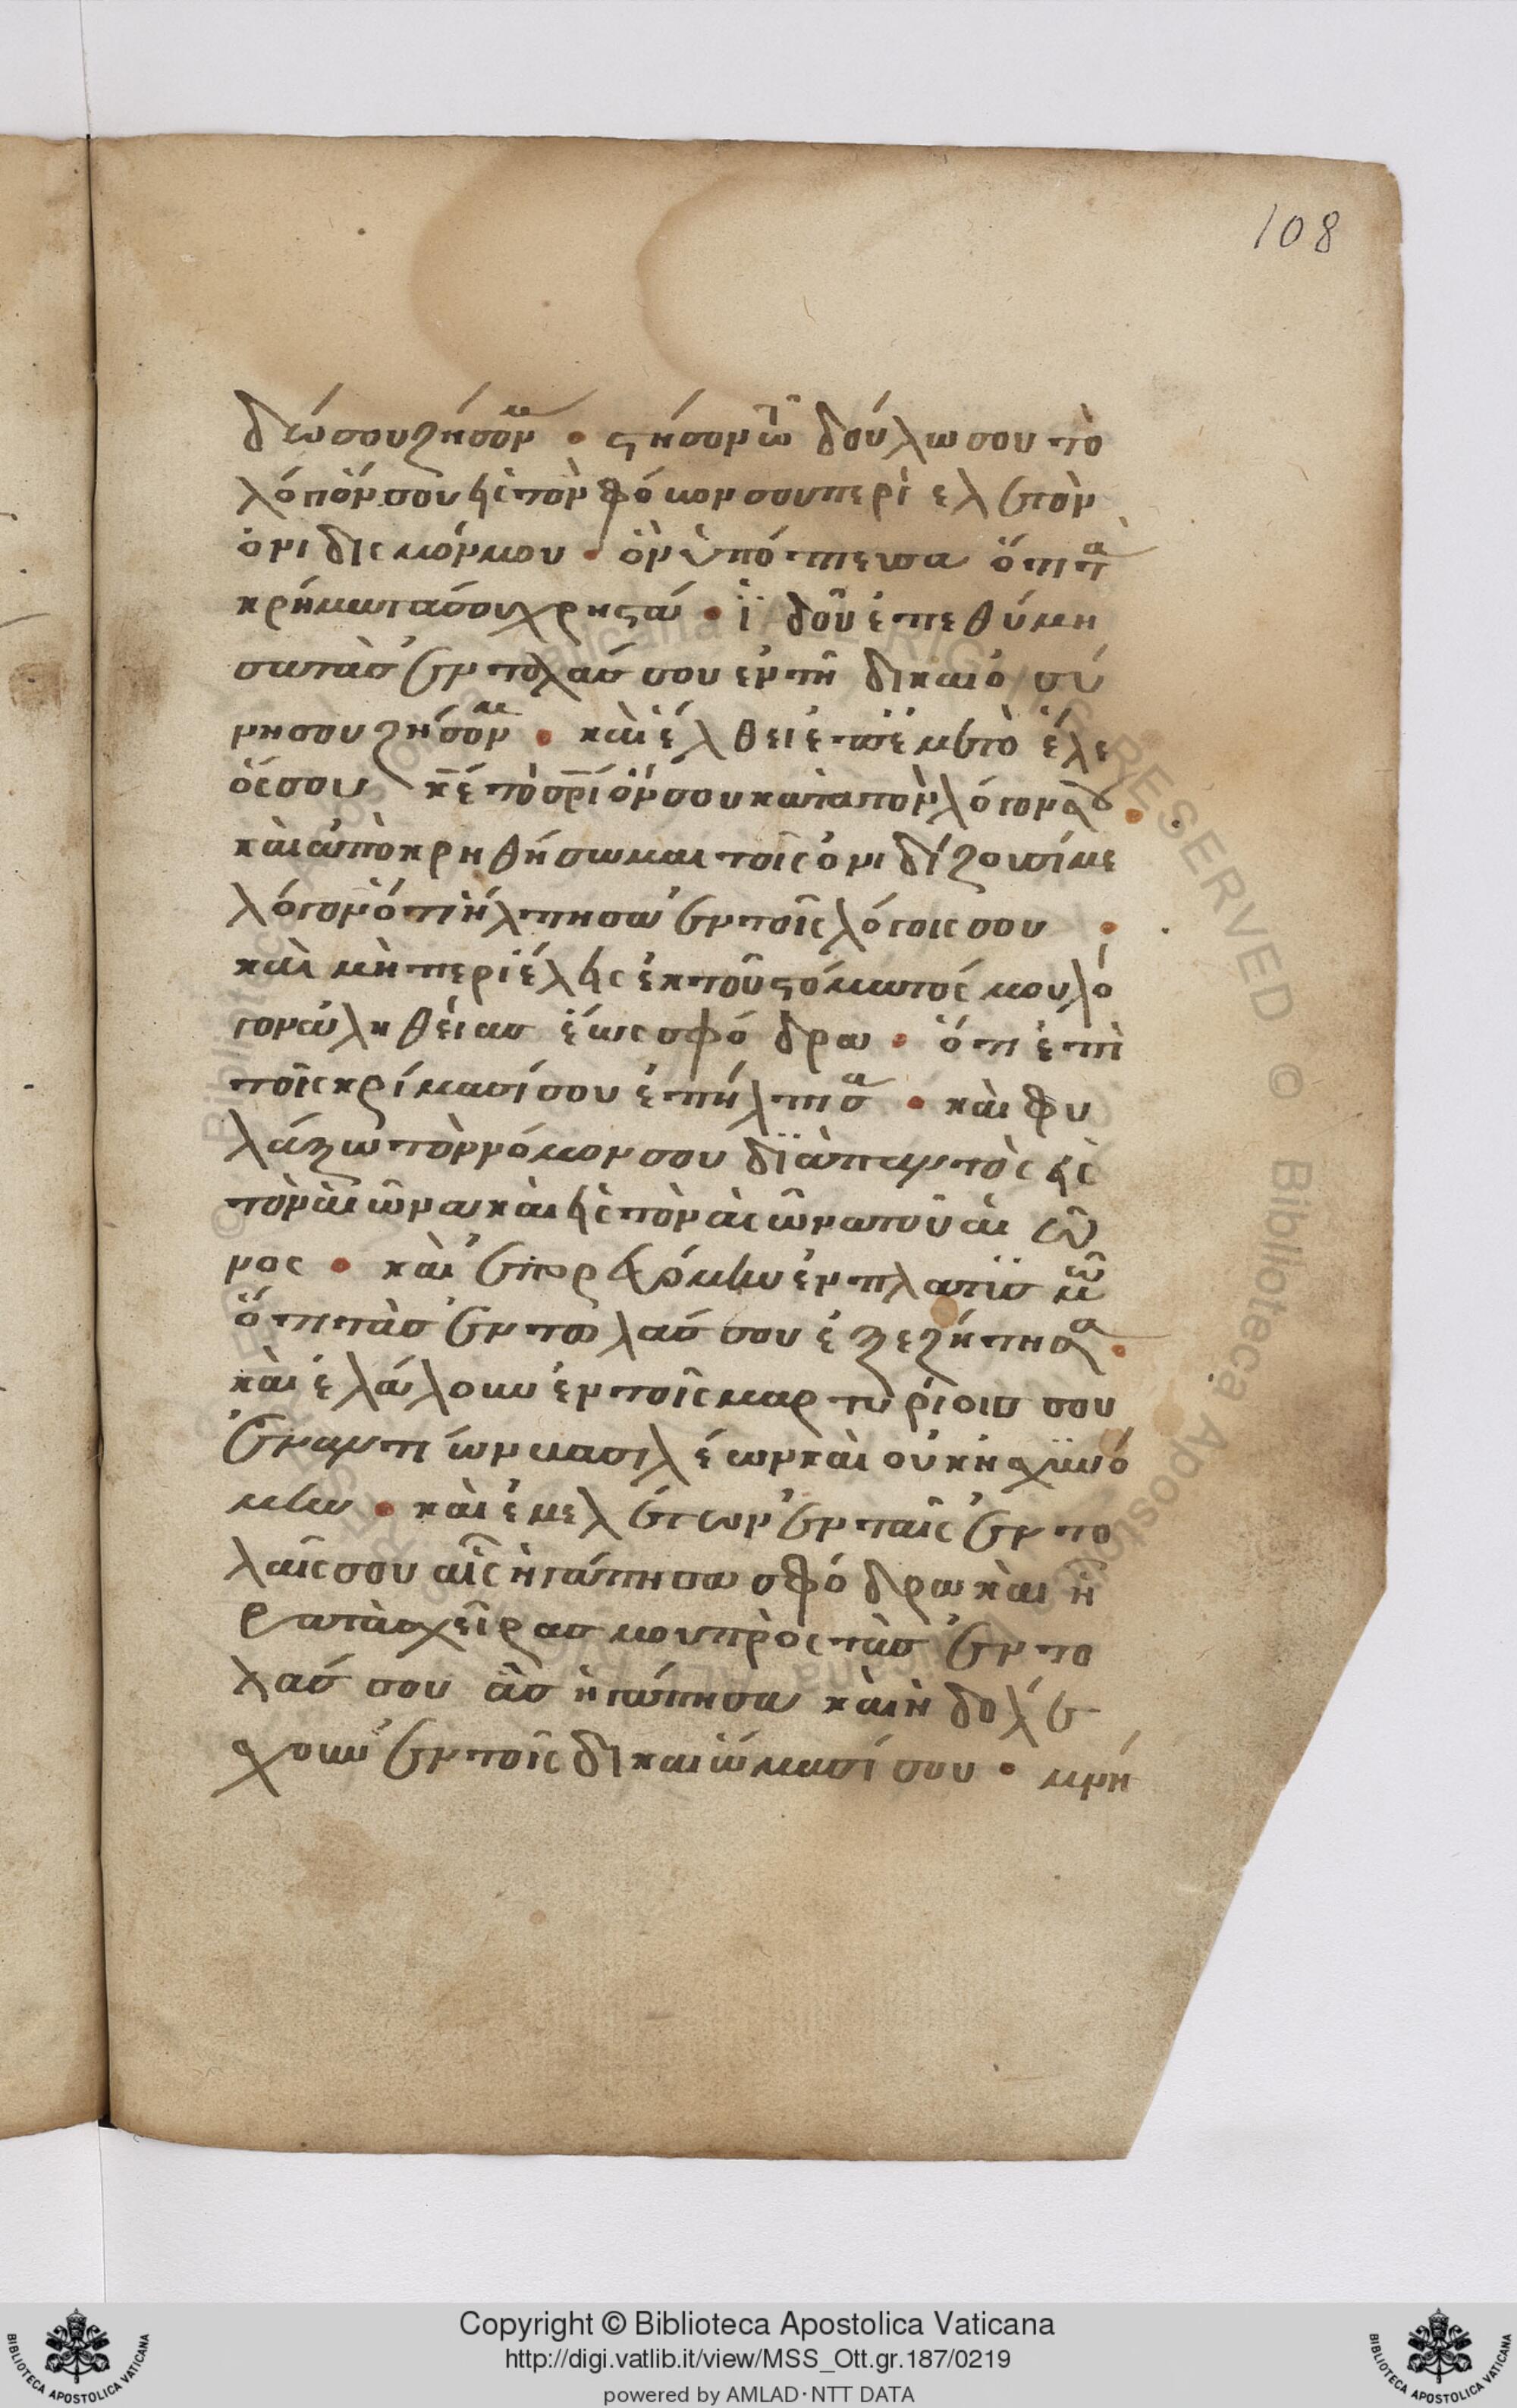 108
δῶ σου ζήσόν με · στήσον τῶ δούλω σου τὸ
λόγιόν σου εἰς τὸν φόβον σου περίελε τὸν
ὀνιδισμόν μου · ὃν ὑπόπτευσα ὅτι τὰ
κρήματά σου χρηστά · ἰδοῦ ἐπεθύμη
σα τὰς ἐντολάς σου ἐν τῆ δικαιοσύ
νη σου ζήσόν με · καὶ ἔλθει ἐπ' ἐμὲ τὸ ἔλε
ός σου κε τὸ σριόν σου κατὰ τὸν λόγον σου ·
καὶ ἀποκρηθήσωμαι τοῖς ὀνιδίζουσί με
λόγον ὅτι ἤλπησα ἐν τοῖς λόγοις σου ·
καὶ μὴ περιέλεις ἐκ τοῦ στόματός μου λό
γον ἀληθείας ἕως σφόδρα · ὅτι ἐπὶ
τοῖς κρίμασί σου ἐπήλπισα · καὶ φυ
λάξω τὸν νόμον σου διὰ παντὸς εἰς
τὸν αἰῶνα καὶ εἰς τὸν αἰῶνα τοῦ αἰῶ
νος · καὶ ἐπορευόμην ἐν πλατυσμῶ
ὅτι τὰς ἐντολάς σου ἐξεζήτησα ·
καὶ ἐλάλουν ἐν τοῖς μαρτυρίοις σου
ἐναντίων βασιλέων καὶ οὐκ ἠσχυνό
μην · καὶ ἐμελέτων ἐν ταῖς ἐντο
λαῖς σου αἷς ἠγάπησα σφόδρα καὶ ἦ
ρα τὰς χεῖρας μου πρὸς τὰς ἐντο
λάς σου ἃς ἠγάπησα καὶ ἠδολέσ
χουν ἐν τοῖς δικαιώμασί σου · μνή
Copyright © Biblioteca Apostolica Vaticana
http://digi.vatlib.it/view/MSS_Ott.gr.187/0219
powered by AMLAD·NTT DATA